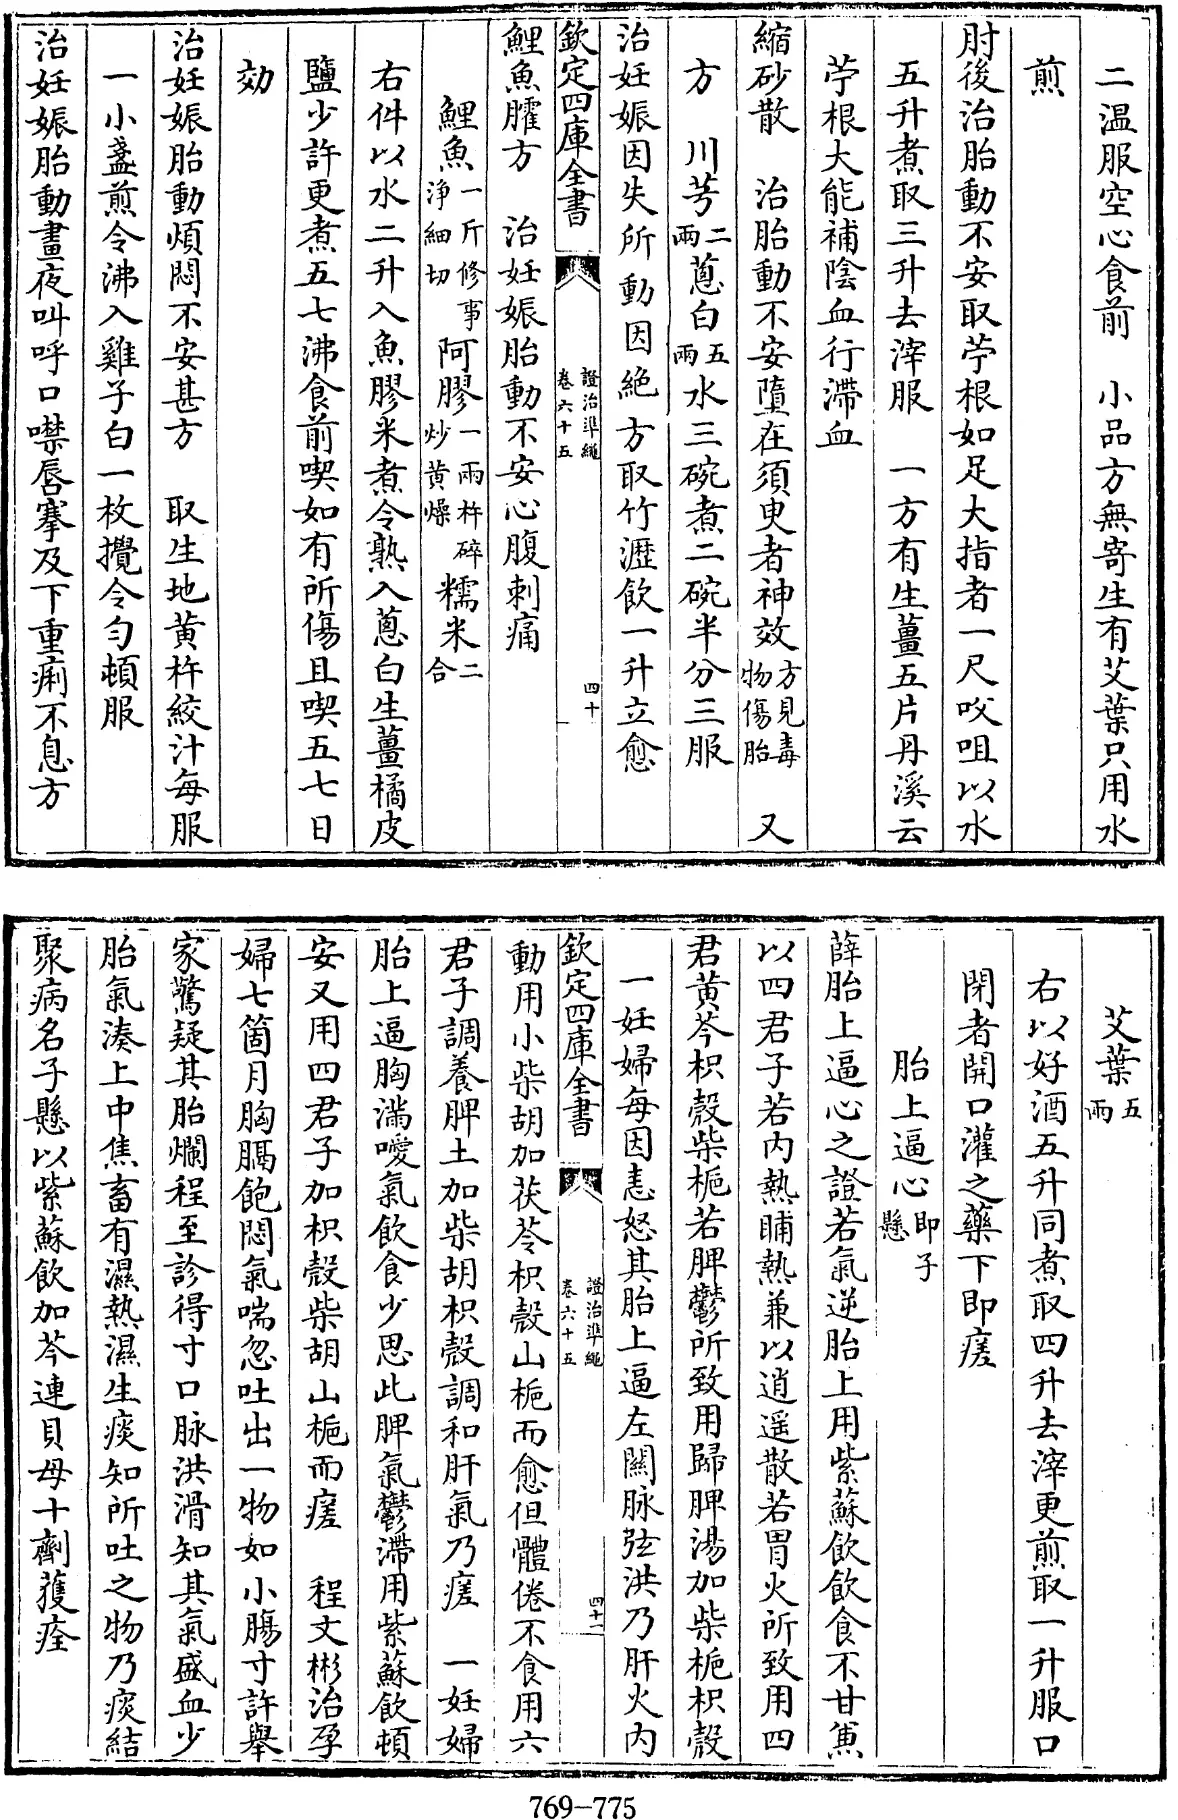 二温服空心食前　小品方無寄生有艾葉只用水
煎
肘後治胎動不安取苧根如足大指者一尺㕮咀以水
五升煮取三升去滓服　一方有生薑五片丹溪云
苧根大能補陰血行滯血
縮砂散　治胎動不安墮在須臾者神效方見毒物傷胎　又
方　川芎二兩蔥白五兩水三碗煮二碗半分三服
治妊娠因失所動因絶方取竹瀝飲一升立愈
欽定四庫全書　證治準繩卷六十五　四十
鯉魚臛方　治妊娠胎動不安心腹刺痛
鯉魚一斤修事淨細切阿膠一兩杵碎炒黄燥糯米二合
右件以水二升入魚膠米煮令熟入蔥白生薑橘皮
鹽少許更煮五七沸食前喫如有所傷且喫五七日
効
治妊娠胎動煩悶不安甚方　取生地黄杵絞汁每服
一小盞煎令沸入雞子白一枚攪令勻頓服
治妊娠胎動晝夜叫呼口噤唇搴及下重痢不息方
艾葉五兩
右以好酒五升同煮取四升去滓更煎取一升服口
閉者開口灌之藥下即瘥
胎上逼心即子懸
薛胎上逼心之證若氣逆胎上用紫蘇飲飲食不甘兼
以四君子若内熱晡熱兼以逍遥散若胃火所致用四
君黄芩枳殼柴梔若脾鬱所致用歸脾湯加柴梔枳殼
一妊婦每因恚怒其胎上逼左關脉弦洪乃肝火内
欽定四庫全書　證治準繩卷六十五　四十一
動用小柴胡加茯苓枳殼山梔而愈但體倦不食用六
君子調養脾土加柴胡枳殼調和肝氣乃瘥　一妊婦
胎上逼胸滿噯氣飲食少思此脾氣鬱滯用紫蘇飲頓
安又用四君子加枳殼柴胡山梔而瘥　程文彬治孕
婦七箇月胸膈飽悶氣喘忽吐出一物如小腸寸許舉
家驚疑其胎爛程至診得寸口脉洪滑知其氣盛血少
胎氣湊上中焦畜有濕熱濕生痰知所吐之物乃痰結
聚病名子懸以紫蘇飲加芩連貝母十劑獲痊
769-775